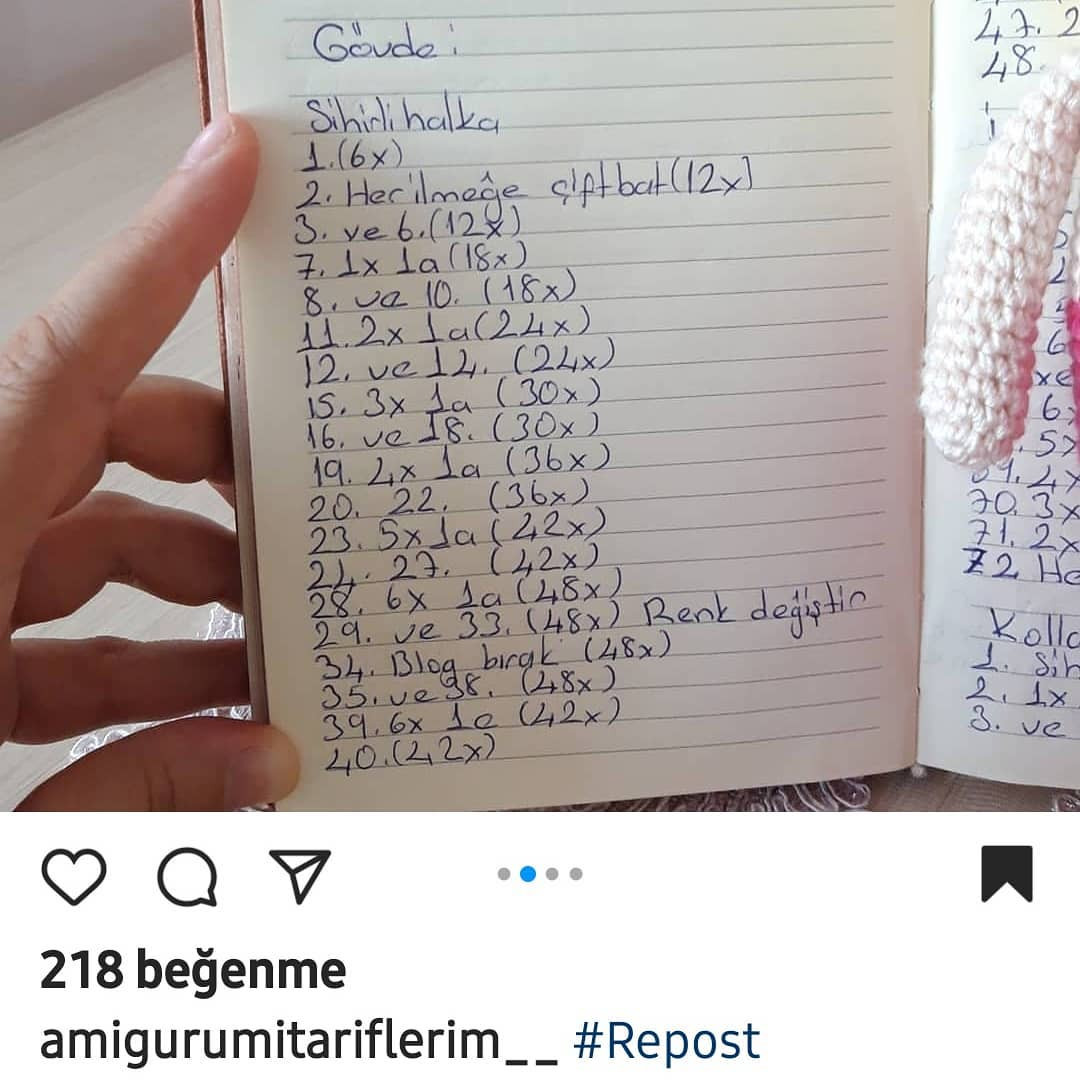 Gövde:
Sihirli halka
1.(6x)
2. Her ilmeğe çift bat(12x)
3. ve 6.(12x)
7. 1x 1a(18x)
8. ve 10. (18x)
11. 2x 1a(24x)
12. ve 14. (24x)
15. 3x 1a (30x)
16. ve 18. (30x)
19. 4x 1a (36x)
20. 22. (36x)
23. 5x 1a (42x)
24. 27. (42x)
28. 6x 1a (48x)
29. ve 33. (48x) Renk değiştir
34. Blog bırak (48x)
35. ve 38. (48x)
39. 6x 1e (42x)
40.(42x)
47. 2
48.
6x
5x
4x
70. 3x
71. 2x
72 He
Kolla
1. Sih
2. 1x
3. ve
218 beğenme
amigurumitariflerim__ #Repost